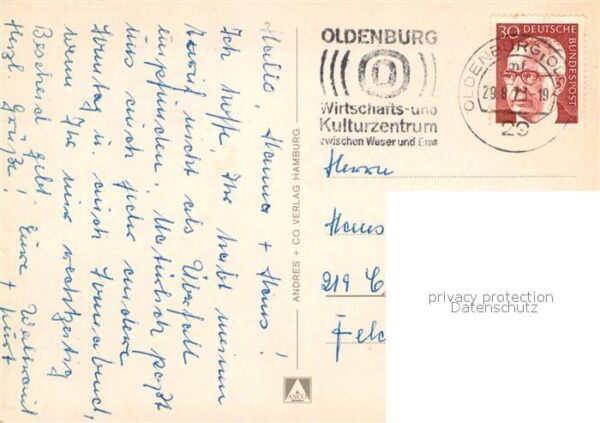 Hallo, Hanna + Hans!
Ich hoffe Ihr habt meinen
Anruf nicht als Überfall
empfunden. Natürlich paßt
uns auch jeder andere
Samstag u. auch Sonnabend,
wenn Ihr mir rechtzeitig
Bescheid gebt. Eure Waltraut
Herzl. Grüße! + Kurt
ANDRES + CO VERLAG HAMBURG
ANCO
OLDENBURG
Wirtschafts- und
Kulturzentrum
zwischen Weser und Ems
OLDENBURG (OL
mf
29.8.71-19
29
30 DEUTSCHE
BUNDESPOST
Herrn
Hans
219 C
Feld
privacy protection
Datenschutz